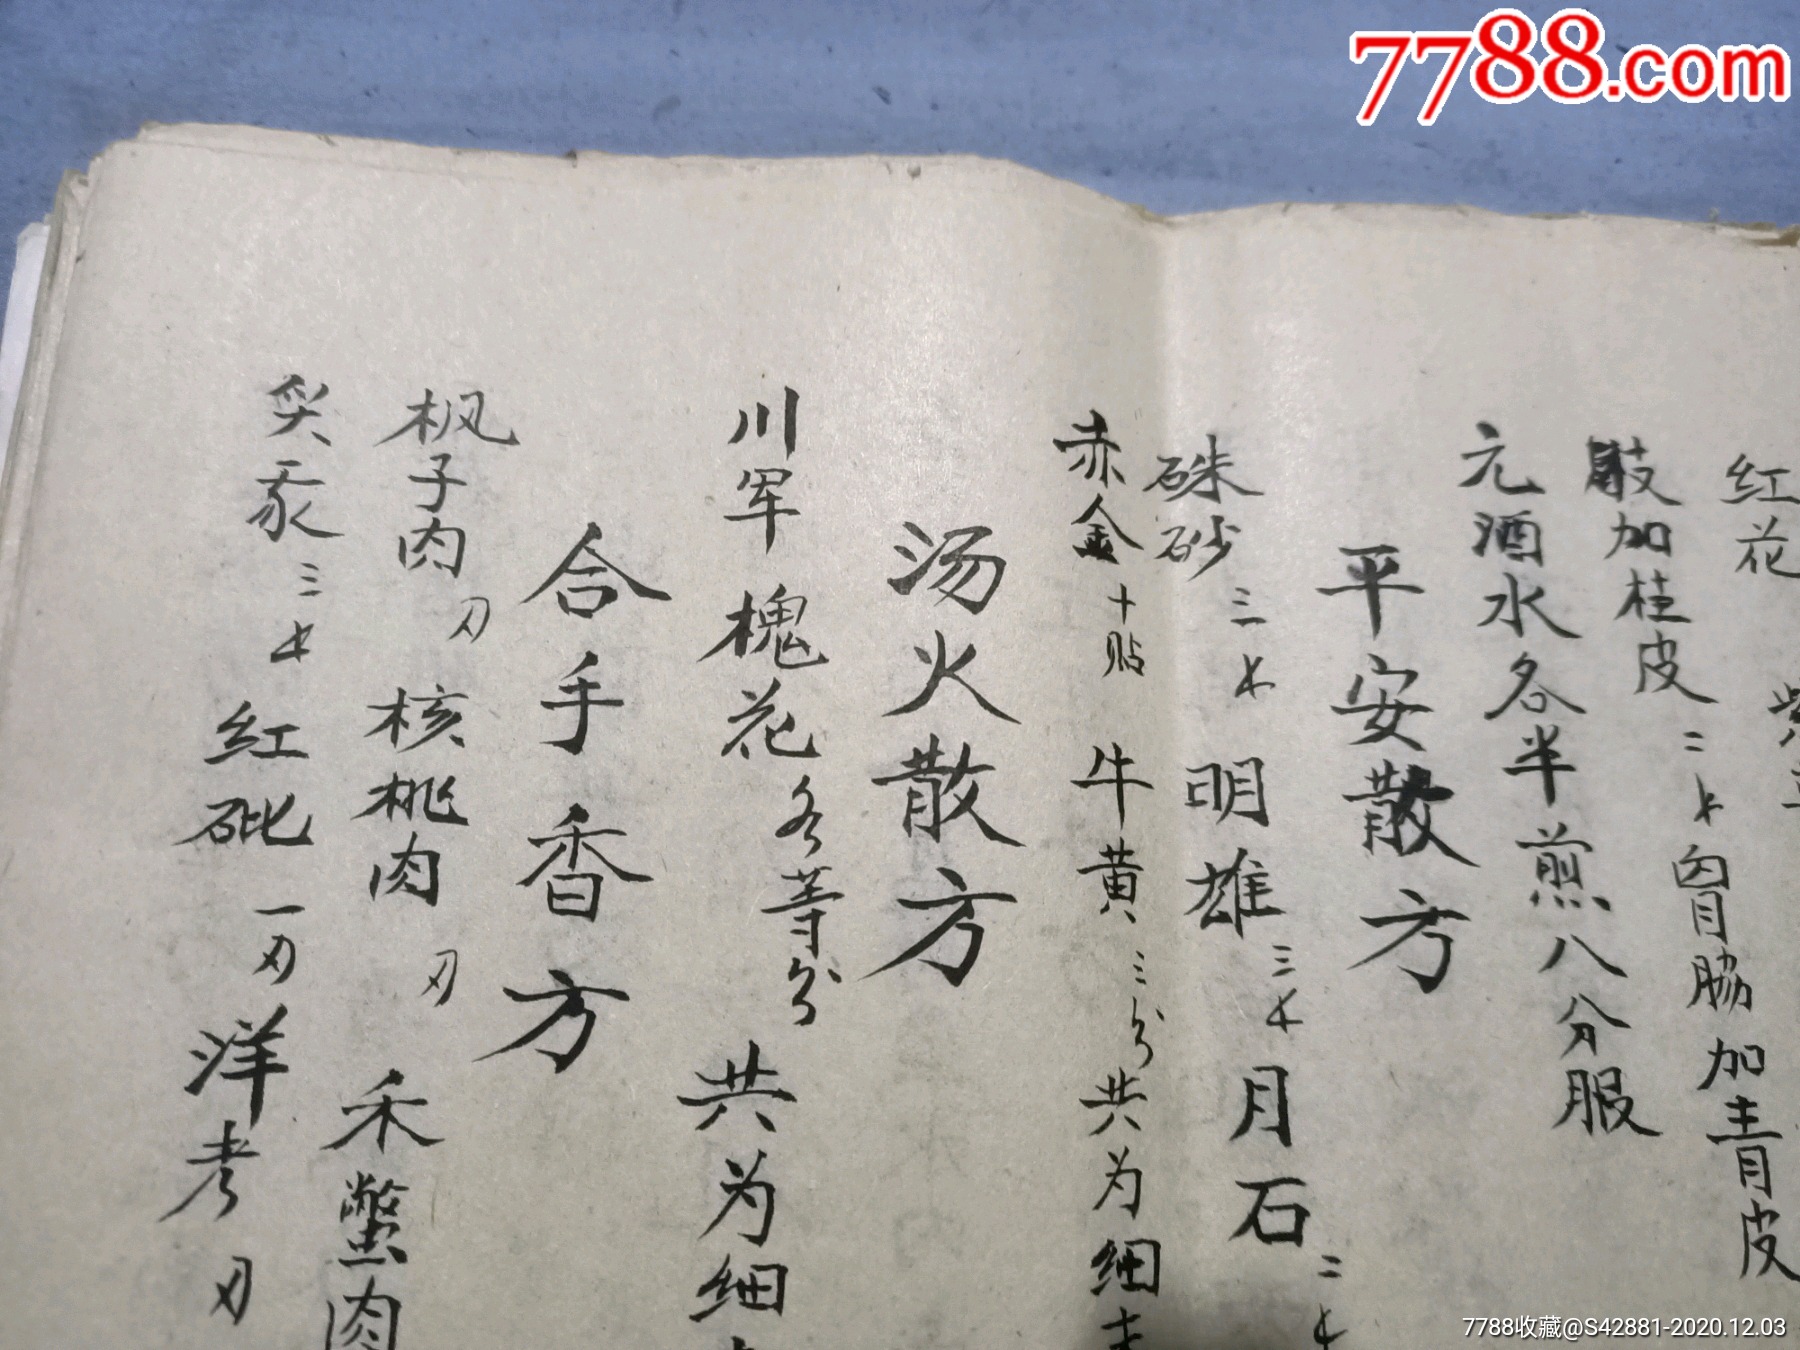 7788.com
红花
加桂皮二
胷脇加青皮
元酒水各半煎八分服
平安散方
硃砂三 明雄三 月石二
赤金十贴 牛黄三分 共为细末
汤火散方
川军 槐花 各等分 共为细
合手香方
枫子肉 核桃肉 禾鳖肉
三 红砒一 洋考
7788收藏@S42881-2020.12.03